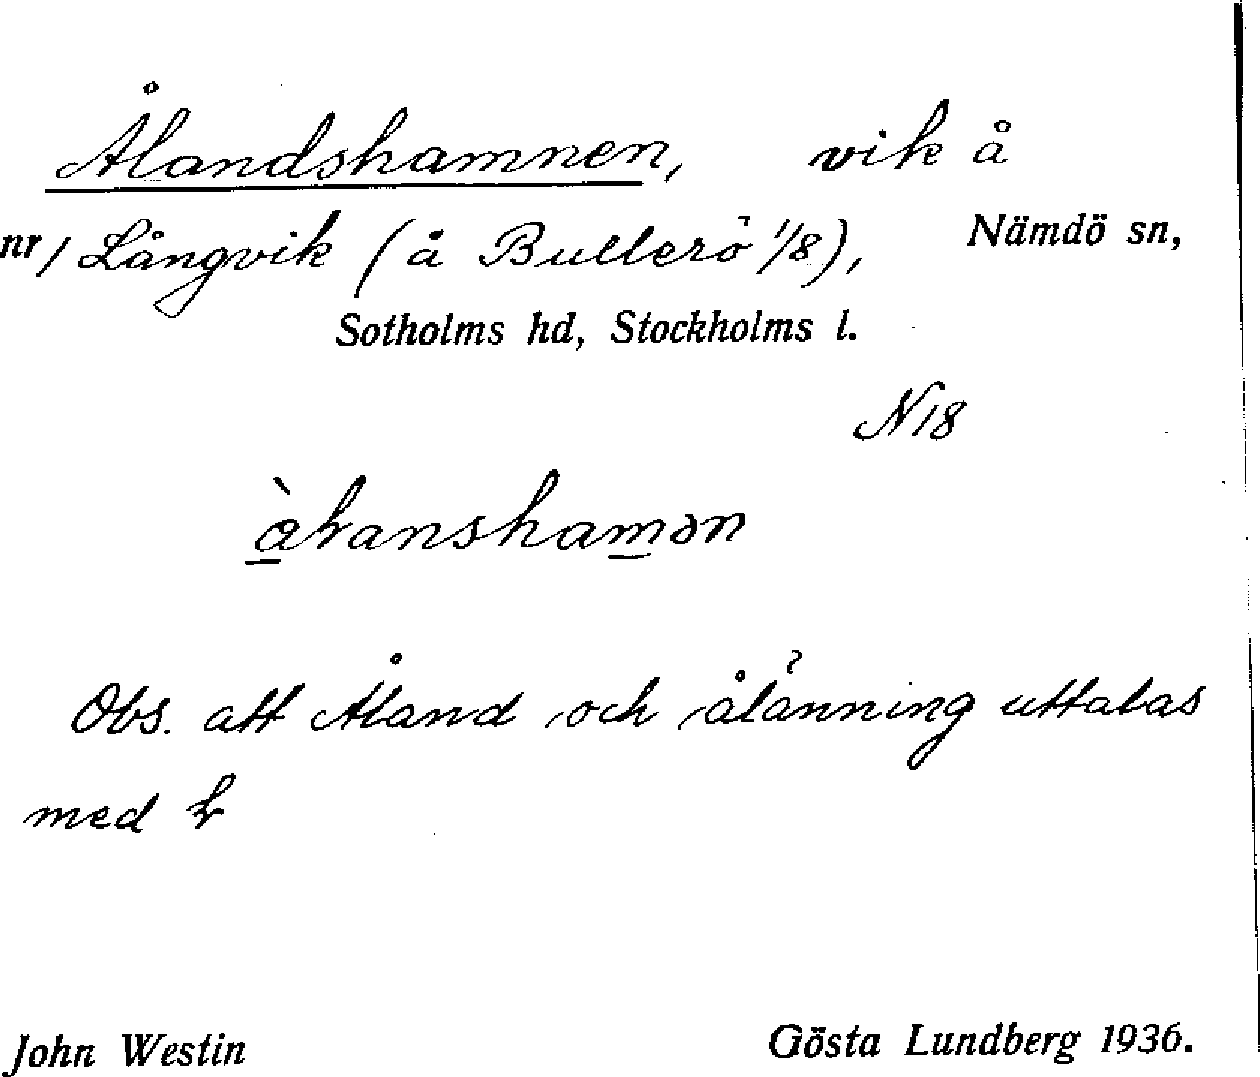 Ålandshamnen, vik å
nr/ Långvik (å Bullerö 1/8), Nämdö sn,
Sotholms hd, Stockholms l.
N18
Obs. att Åland och ålänning uttalas
med
John Westin Gösta Lundberg 1936.